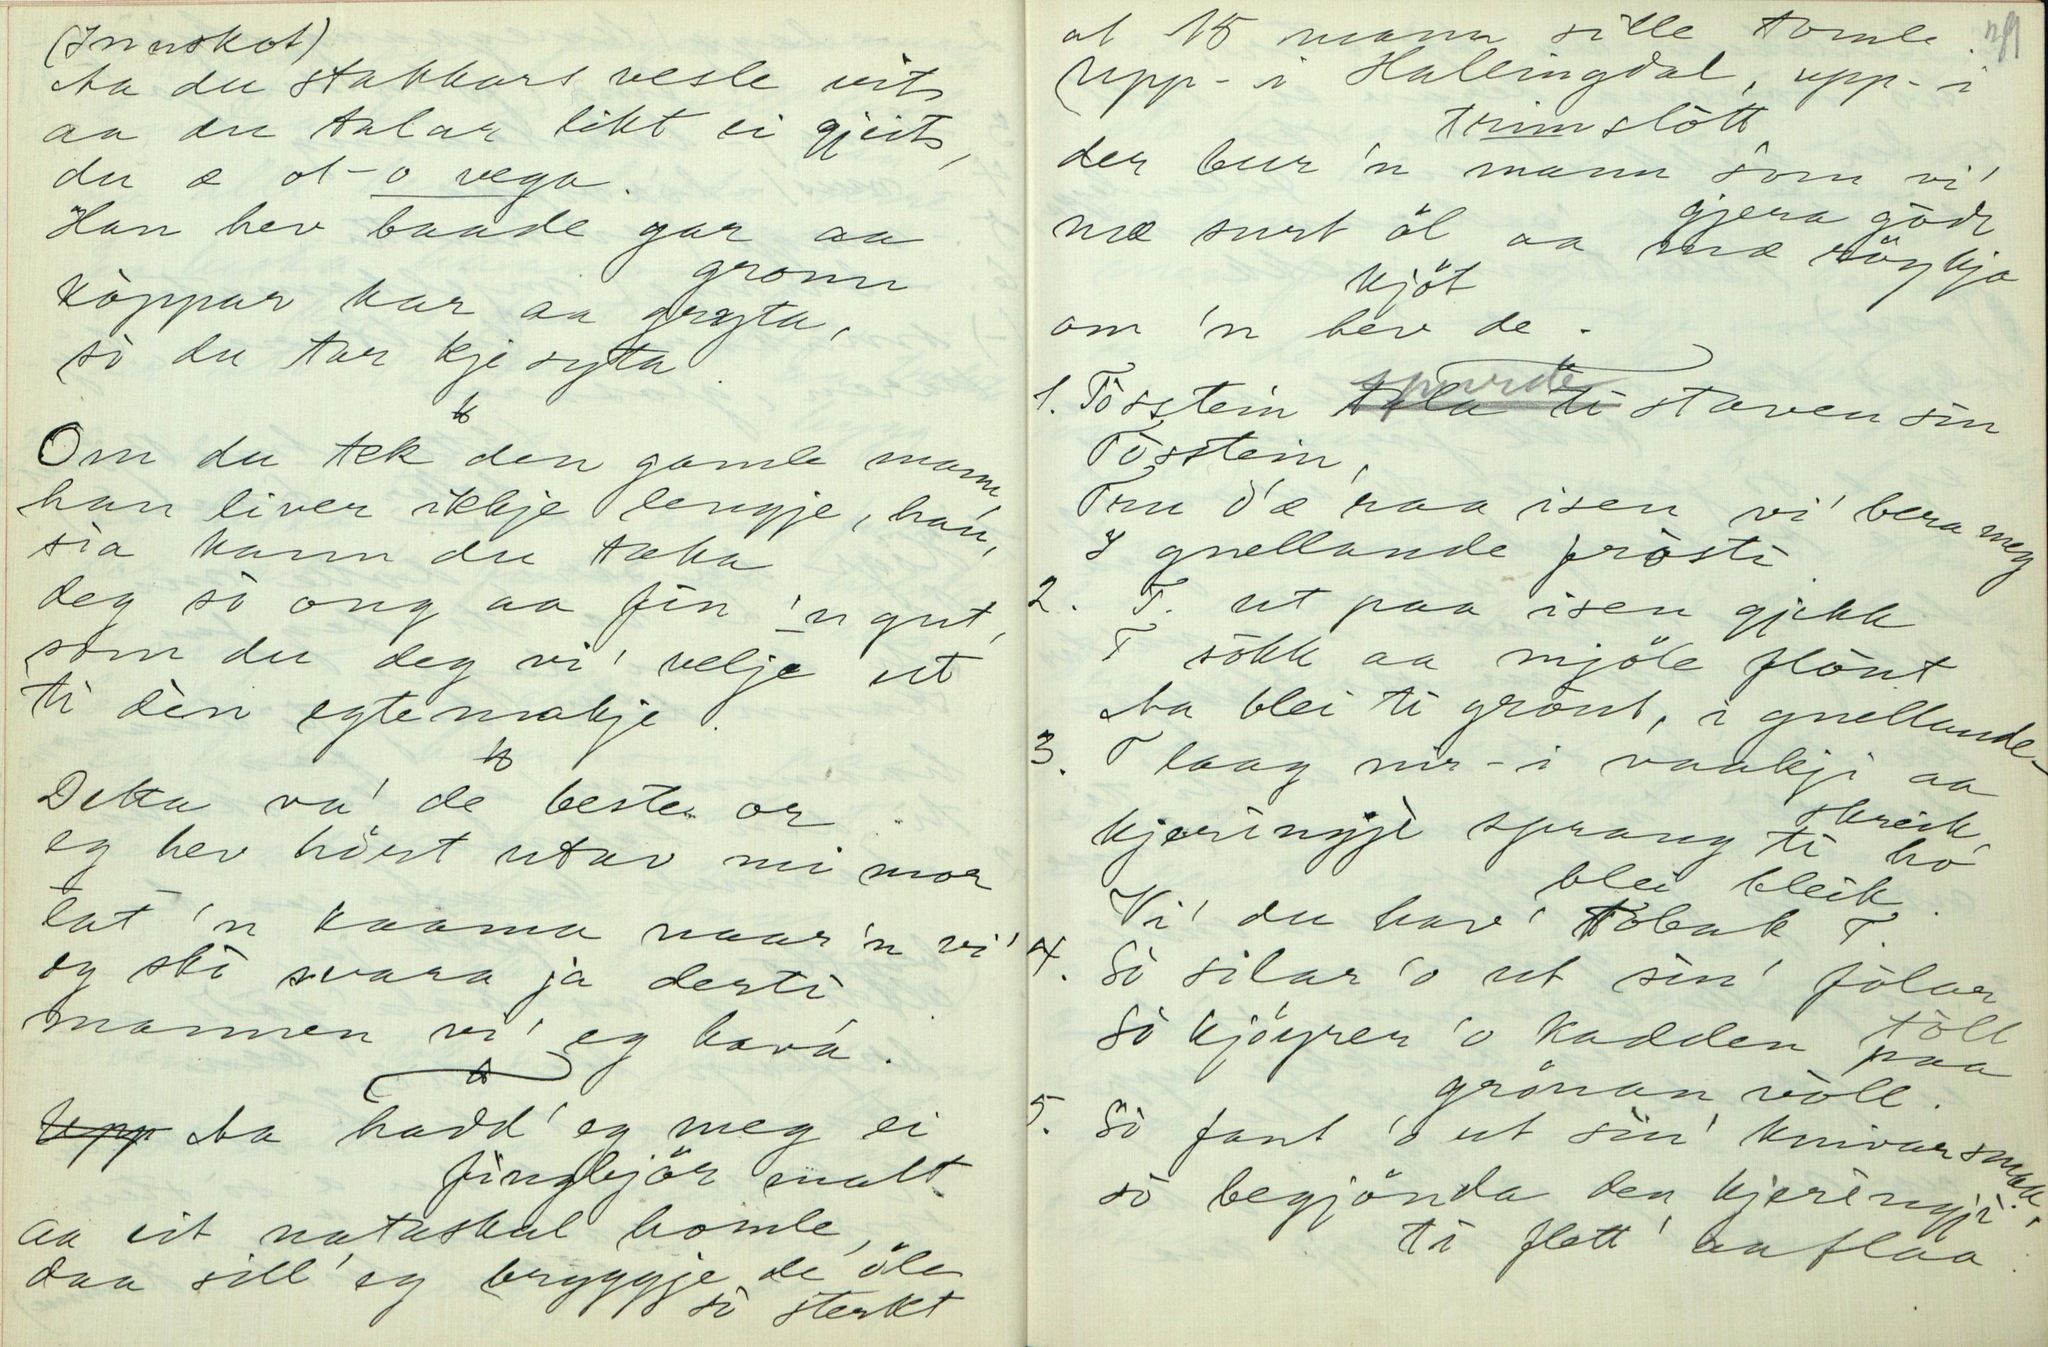 (Innskot)
Aa du stakkars vesle vit,
aa du talar likt ei gjeit,
du æ ot-o vega.
Han hev baade gar aa
gronn
Köppar kar aa gryta,
so du tar kje syta.
Om du tek den gamle mann
han liver ikkje lengje, han,
sia kann du taka
deg so ong aa fin 'n gut,
som du deg vi' velje ut
ti din egtemakje.
Detta va' de beste or
eg hev höirt utav mi mor
lat 'n kaama naar 'n vi'
eg ska svara ja derti
mannen vi' eg hava.
Upp Aa hadd' eg meg ei
fingbjör malt
aa eit notaskal homle,
daa sill' eg bryggje de öle
so sterkt
at 15 mann sille tomle.
Upp-i Hallingdal, upp-i
trimslött
der bur 'n mann som vi'
gjera godt
mæ surt öl aa mæ röykja
kjöt
om 'n hev de.
1. Tosstein tala ti staven sin
spurde
Tosstein,
Tru d'æ raa isen vi' bera meg
I gnellande frosti
2. T. ut paa isen gjekk
T sökk aa mjöle flönt
Aa blei ti grönt, i gnellande-
3. T laag nir-i vaakji aa
skreik,
kjeringji sprang ti ho
blei bleik.
Vi' du hav' tobak T.
4. So silar 'o ut sin' folar
toll
So kjöyrer 'o kadden paa
grönan voll.
5. So fant 'o ut sin' knivar smaa,
so begjönda den kjeringji
ti flett' aa flaa.